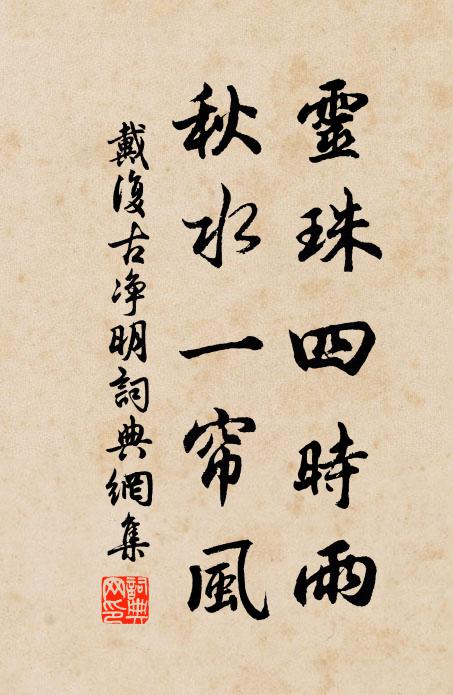 靈珠四時雨
秋水一帘風
戴復古净明詞典網集
詞典
网印